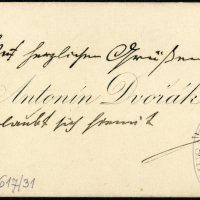 herzlichen Grüßen
Antonín Dvořák
erlaubt sich hiermit
617/31